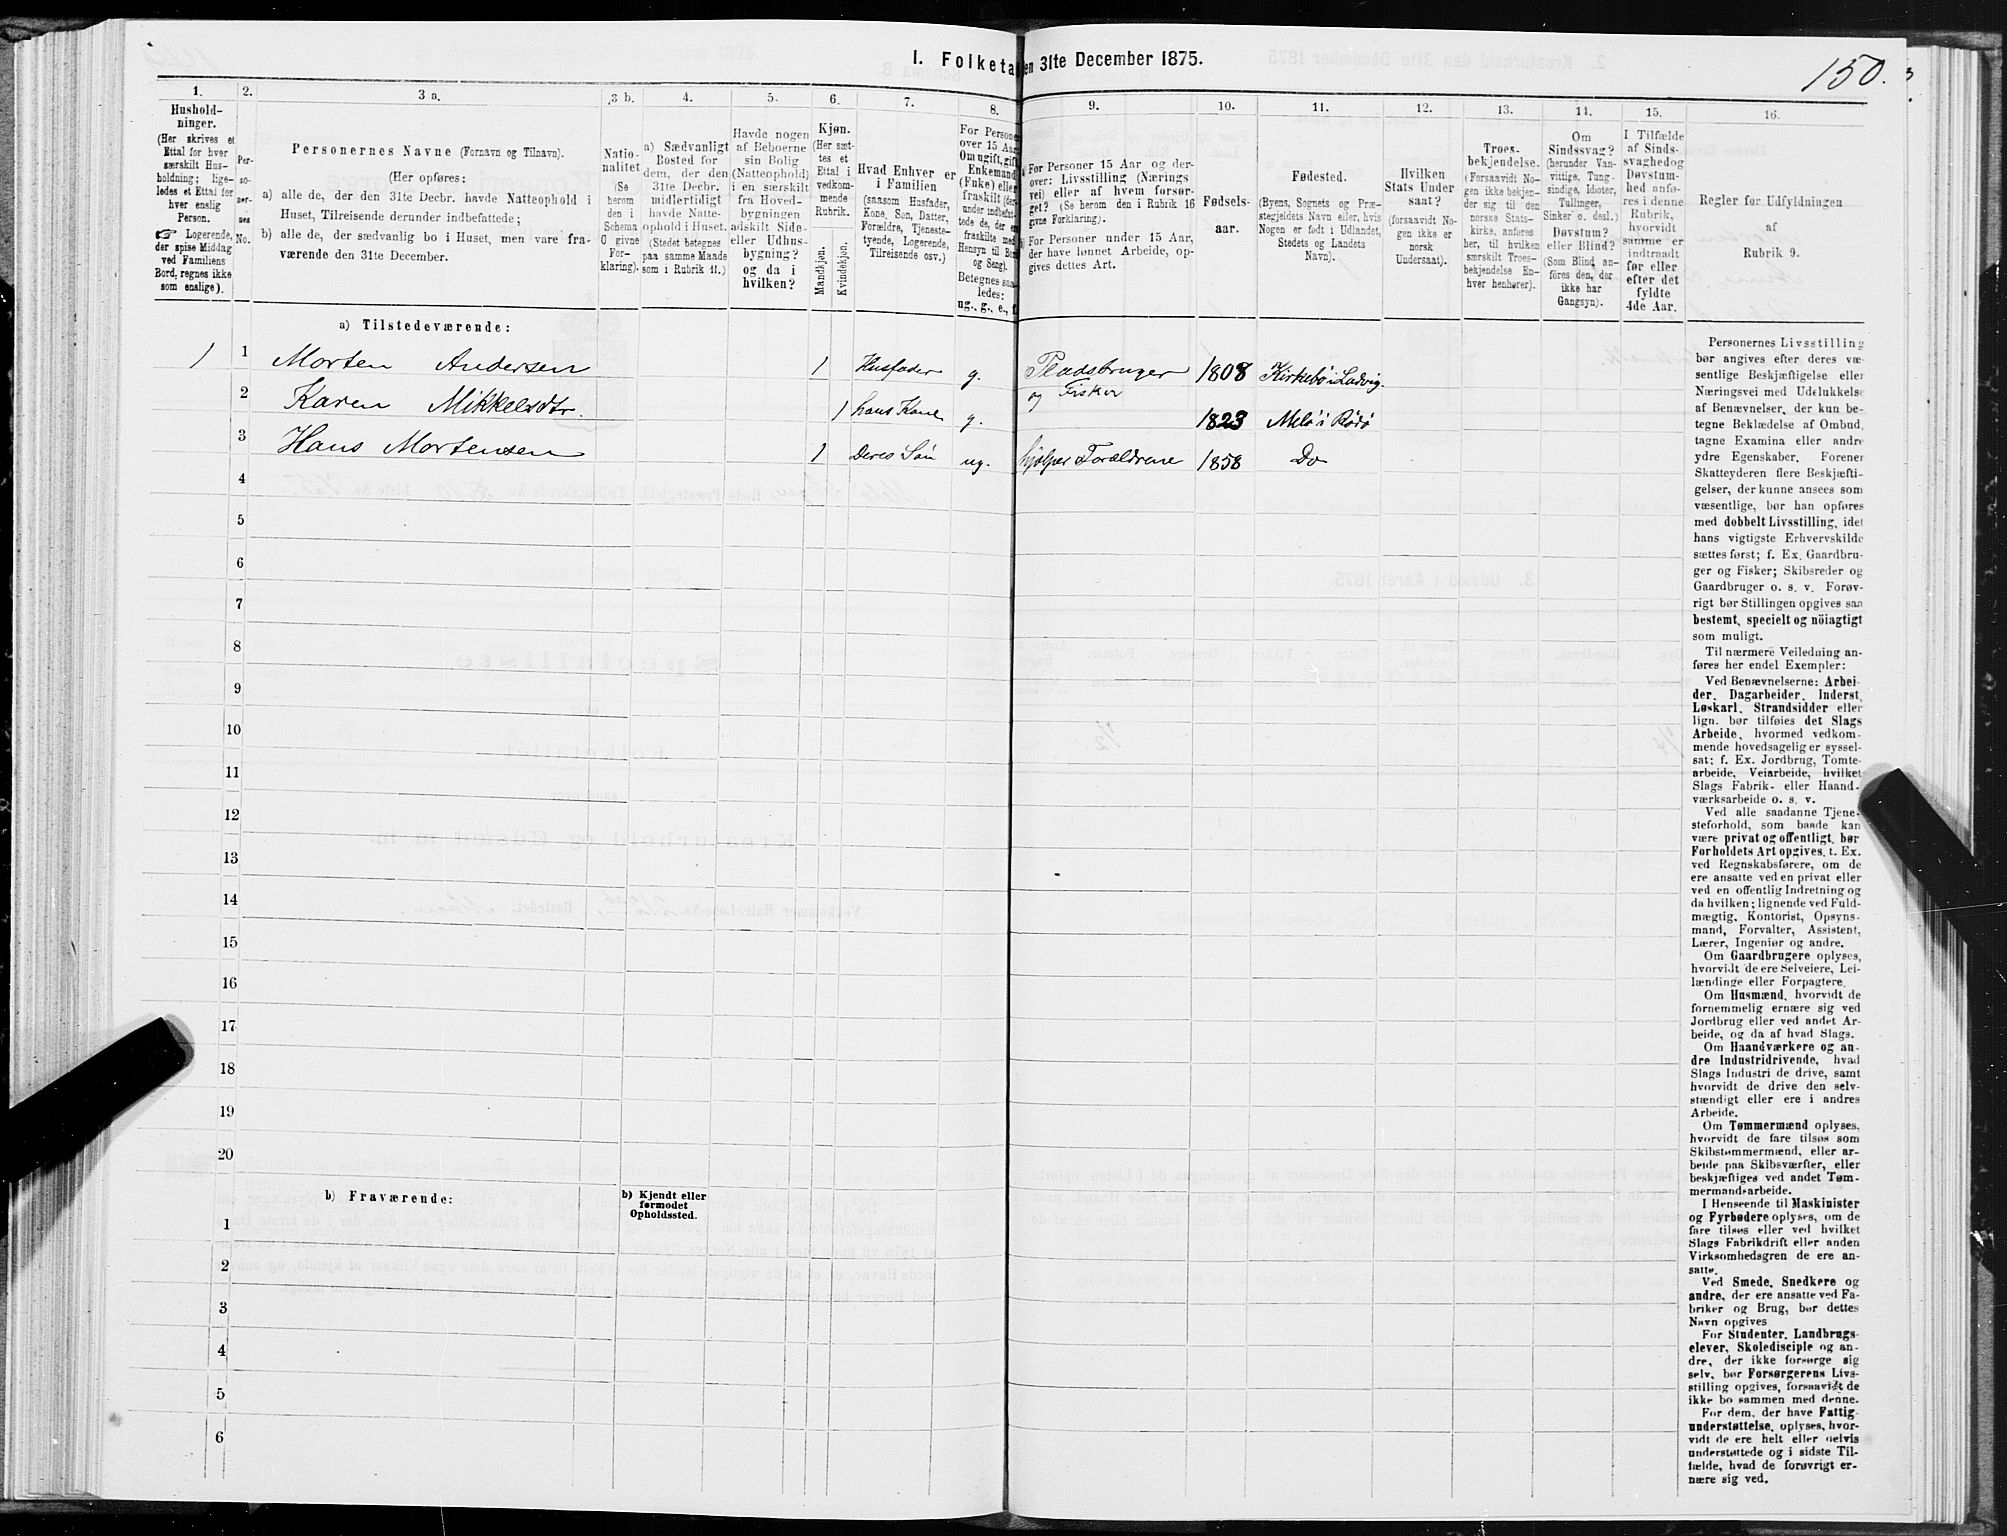 I. Folketa en 31te December 1875.
150.
1.
2.
3 a.
3 b.
4.
5.
6.
7.
8.
9.
10.
11.
12.
13.
14.
15.
16.
Hushold-
ninger.
(Her skrives et
Ettal for hver
særskilt Hus-
holdning; lige-
ledes et Ettal for
hver enslig
Person.
☞ Logerende,
der spise Middag
ved Familiens
Bord, regnes ikke
som enslige).
Per-
so-
ner-
nes
No.
Personernes Navne (Fornavn og Tilnavn).
(Her opføres:
a) alle de, der den 31te Decbr. havde Natteophold i
Huset, Tilreisende derunder indbefattede;
b) alle de, der sædvanlig bo i Huset, men vare fra-
værende den 31te December.
Natio-
nalitet
(Se
herom
den i
Schema
G givne
For-
klaring).
a) Sædvanligt
Bosted for
dem, der den
31te Decbr.
midlertidigt
havde Natte-
ophold i Huset.
(Stedet betegnes
paa samme Maade
som i Rubrik 11.)
Havde nogen
af Beboerne
sin Bolig
(Natteophold)
i en særskilt
fra Hoved-
bygningen
adskilt Side-
eller Udhus-
bygning?
og da i
hvilken?
Kjøn.
(Her sæt-
tes et
Ettal i
vedkom-
mende
Rubrik.
Mandkjøn.
Kvindekjøn.
Hvad Enhver er
i Familien
(saasom Husfader,
Kone, Søn, Datter,
Forældre, Tjeneste-
tyende, Logerende,
Tilreisende osv.)
For Persone
over 15 Aar
Om ugift, gift
Enkemand
(Enke) eller
fraskilt (der-
under indbefat-
tede de, der er
fraskilte med
Hensyn til Bo
og Seng).
Betegnes saa
ledes:
ug., g., e., f.
a) For Personer 15 Aar og der-
over: Livsstilling (Nærings
vei) eller af hvem forsør-
get? (Se herom den i Rubrik 16
givne Forklaring).
b) For Personer under 15 Aar,
der have lønnet Arbeide, op-
gives dettes Art.
Fødsels-
aar.
Fødested.
(Byens, Sognets og Præ-
stegjeldets Navn eller, hvis
Nogen er født i Udlandet,
Stedets og Landets
Navn).
Hvilken
Stats Under
saat?
(forsaavidt No-
gen ikke er
norsk
Undersaat).
Troes-
bekjendelse.
(Forsaavidt No-
gen ikke bekjen-
der sig til den
norske Stats-
kirke, anføres
her, til hvilken
særskilt Troes-
bekjendelse En-
hver henhører).
Om
Sindssvag?
(herunder Van-
vittige, Tung-
sindige, Idioter,
Tullinger,
Sinker o. desl.)
Døvstum?
eller Blind?
(Som Blind an-
føres den, der
ikke har
Gangsyn).
I Tilfælde
af Sinds-
svaghedog
Døvstum-
hed anfø-
res i denne
Rubrik,
hvorvidt
samme er
indtraadt
før eller
efter det
fyldte
4de Aar.
Regler for Udfyldningen
af
Rubrik 9.
a) Tilstedeværende:
1 1 Morten Andersen 1 Husfader g. Pladsbruger 1808 Kirkebö i Ladvig.
og Fisker
2 Karen Mikkelsdtr. 1 hans Kone g. 1823 Melö i Rödö
3 Hans Mortensen 1 Deres Sön ug. hjælper Forældrene 1858 Do
4
5
6
7
8
9
10
11
12
13
14
15
16
17
18
19
20
b) Fraværende:
b) Kjendt eller
formodet
Opholdssted.
1
2
3
4
5
6
Personernes Livsstilling
bør angives efter deres væ-
sentlige Beskjæftigelse eller
Næringsvei med Udelukkelse
af Benævnelser, der kun be-
tegne Beklædelse af Ombud,
tagne Examina eller andre
ydre Egenskaber. Forener
Skatteyderen flere Beskjæfti-
gelser, der kunne ansees som
væsentlige, bør han opføres
med dobbelt Livsstilling, idet
hans vigtigste Erhvervskilde
sættes først; f. Ex. Gaardbru-
ger og Fisker; Skibsreder og
Gaardbruger o. s. v. Forøv-
rigt bør Stillingen opgives saa
bestemt, specielt og nöiagtigt
som muligt.
Til nærmere Veiledning an-
føres her endel Exempler:
Ved Benævnelserne: Arbei-
der, Dagarbeider, Inderst,
Løskarl, Strandsidder eller
lign. bør tilføies det Slags
Arbeide, hvormed vedkom-
mende hovedsagelig er syssel-
sat; f. Ex. Jordbrug, Tomte-
arbeide, Veiarbeide, hvilket
Slags Fabrik- eller Haand-
værksarbeide o. s. v.
Ved alle saadanne Tjene-
steforhold, som baade kan
være privat og offentligt, bør
Forholdets Art opgives, t. Ex.
ved Regnskabsførere, om de
ere ansatte ved en privat eller
ved en offentlig Indretning og
da hvilken; lignende ved Fuld-
mægtig, Kontorist, Opsyns-
mand, Forvalter, Assistent,
Lærer, Ingeniør og andre.
Om Gaardbrugere oplyses,
hvorvidt de ere Selveiere, Lei-
lændinge eller Forpagtere.
Om Husmænd, hvorvidt de
fornemmelig ernære sig ved
Jordbrug eller ved andet Ar-
beide, og da af hvad Slags.
Om Haandværkere og an-
dre Industridrivende, hvad
Slags Industri de drive, samt
hvorvidt de drive den selv-
stændigt eller ere i andres
Arbeide.
Om Tømmermænd oplyses,
hvorvidt de fare tilsøs som
Skibstømmermænd, eller ar-
beide paa Skibsværfter, eller
beskjæftiges ved andet Tøm-
mermandsarbeide.
I Henseende til Maskinister
og Fyrbødere oplyses, om de
fare tilsøs eller ved hvilket
Slags Fabrikdrift eller anden
Virksomhedsgren de ere an-
satte.
Ved Smede, Snedkere og
andre, der ere ansatte ved Fa-
briker og Brug, bør dettes
Navn opgives
For Studenter, Landbrugs-
elever, Skoledisciple og an-
dre, der ikke forsørge sig
selv, bør Forsørgerens Livs-
stilling opgives, forsaavidt de
ikke bo sammen med denne.
For dem, der have Fattig-
understøttelse, oplyses, hvor-
vidt de ere helt eller delvis
understøttede og i sidste Til-
fælde, hvad de forøvrigt er-
nære sig ved.